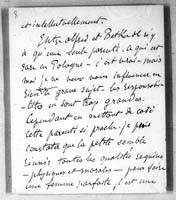 et intellectuellement.
Entre Alfred et Berthe il n'y
a qu'une seule parenté. Ce qui est
rare en Pologne - c'est vrai - mais
mais je ne veux vous influencer en
si grave sujet - les responsabi-
lités en sont trop grandes.
Cependant en mettant de côté
cette parenté si proche - je puis
constater que la petite semble
réunir toutes les qualités requises
- physiques et morales - pour faire
une femme parfaite, c'est une